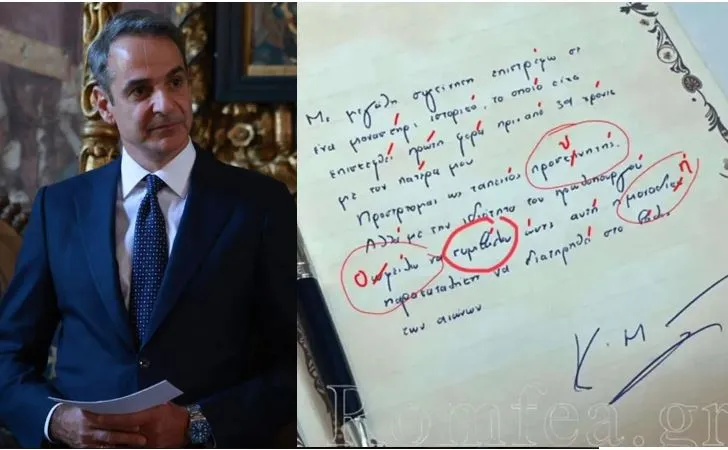 Με μεγάλη συγκίνηση επιστρέφω σε
ένα μοναστήρι ιστορικό, το οποίο είχα
επισκεφθεί πρώτη φορά πριν από χρόνια
με τον πατέρα μου
Προσέρχομαι ως ταπεινός
υ
Αλλά με την ιδιότητα του πρωθυπουργού
ή
να ώστε αυτή η
παρακαταθήκη να διατηρηθεί στο
των αιώνων
Κ. Μ
Romfea.gr